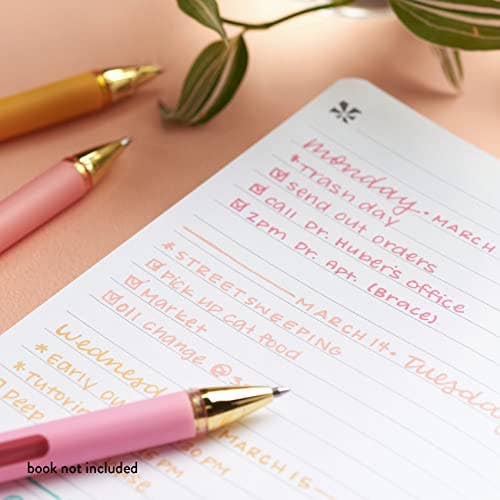 monday • MARCH
*Trash day
☑ send out orders
☑ call Dr. Huber's office
☑ 2pm Dr. Apt. (Brace)
MARCH 14 • Tuesday
*STREET SWEEPING
☑ Pick up cat food
☑ Market
☑ Oil change @
wednesday
MARCH 15
* Early
* Tutoring
book not included